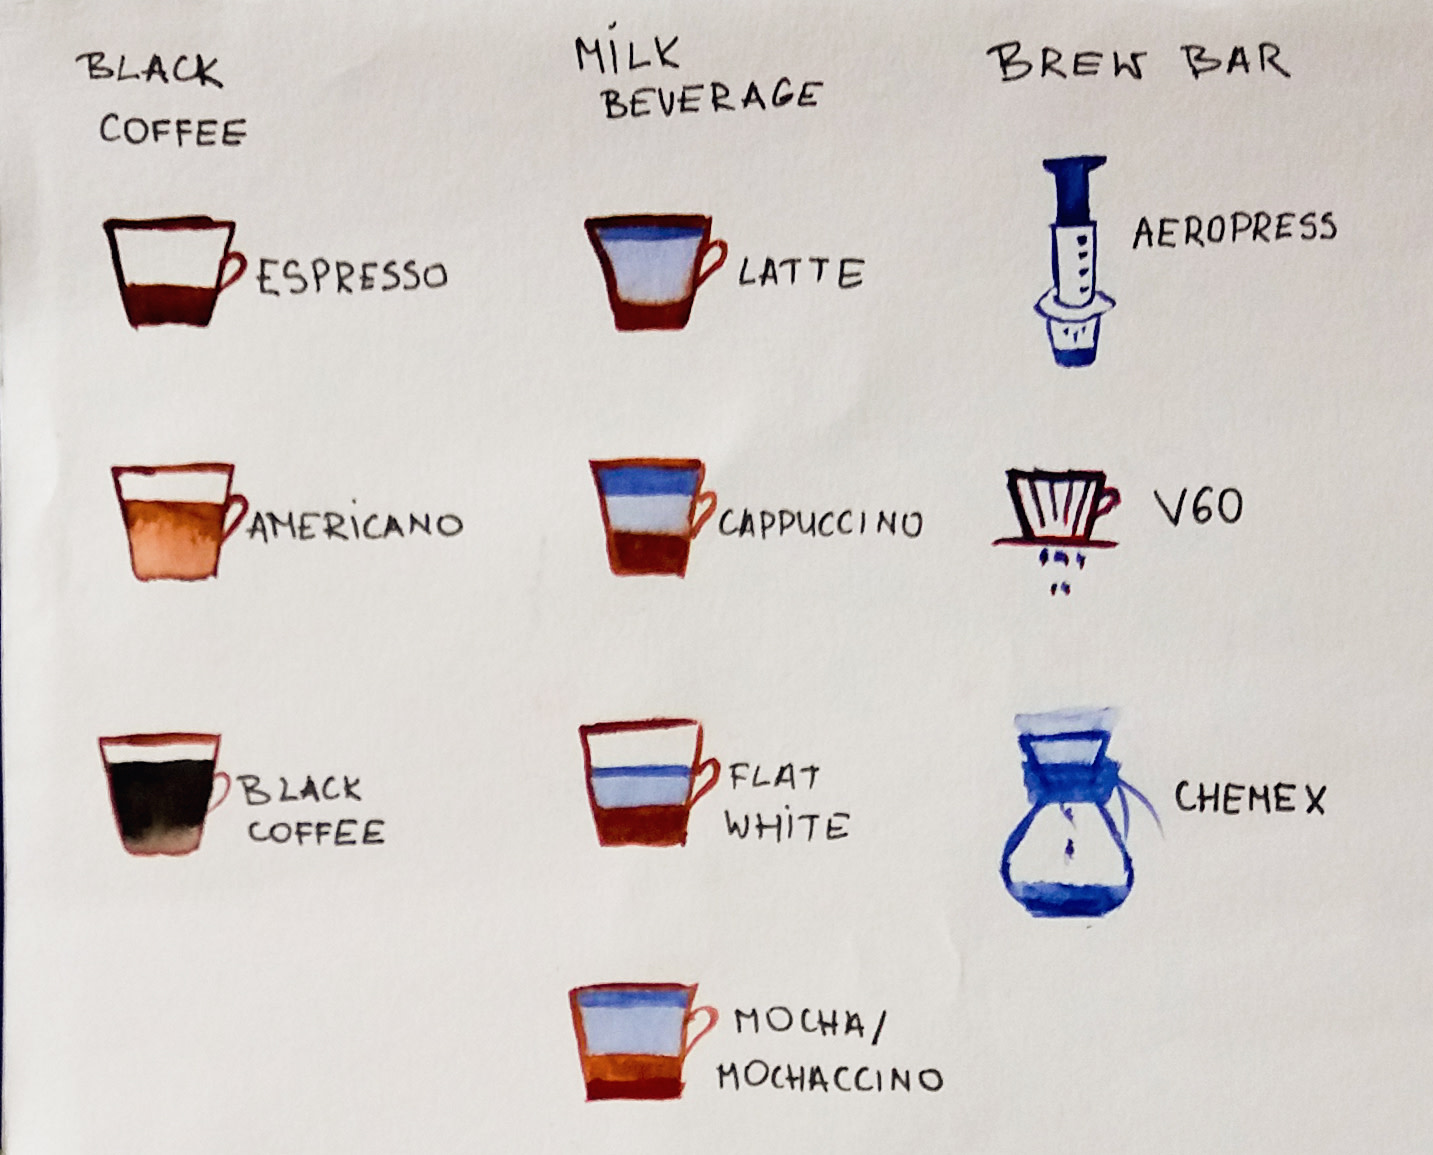 BLACK
COFFEE
ESPRESSO
AMERICANO
BLACK
COFFEE
MILK
BEVERAGE
LATTE
CAPPUCCINO
FLAT
WHITE
MOCHA/
MOCHACCINO
BREW BAR
AEROPRESS
V60
CHEMEX